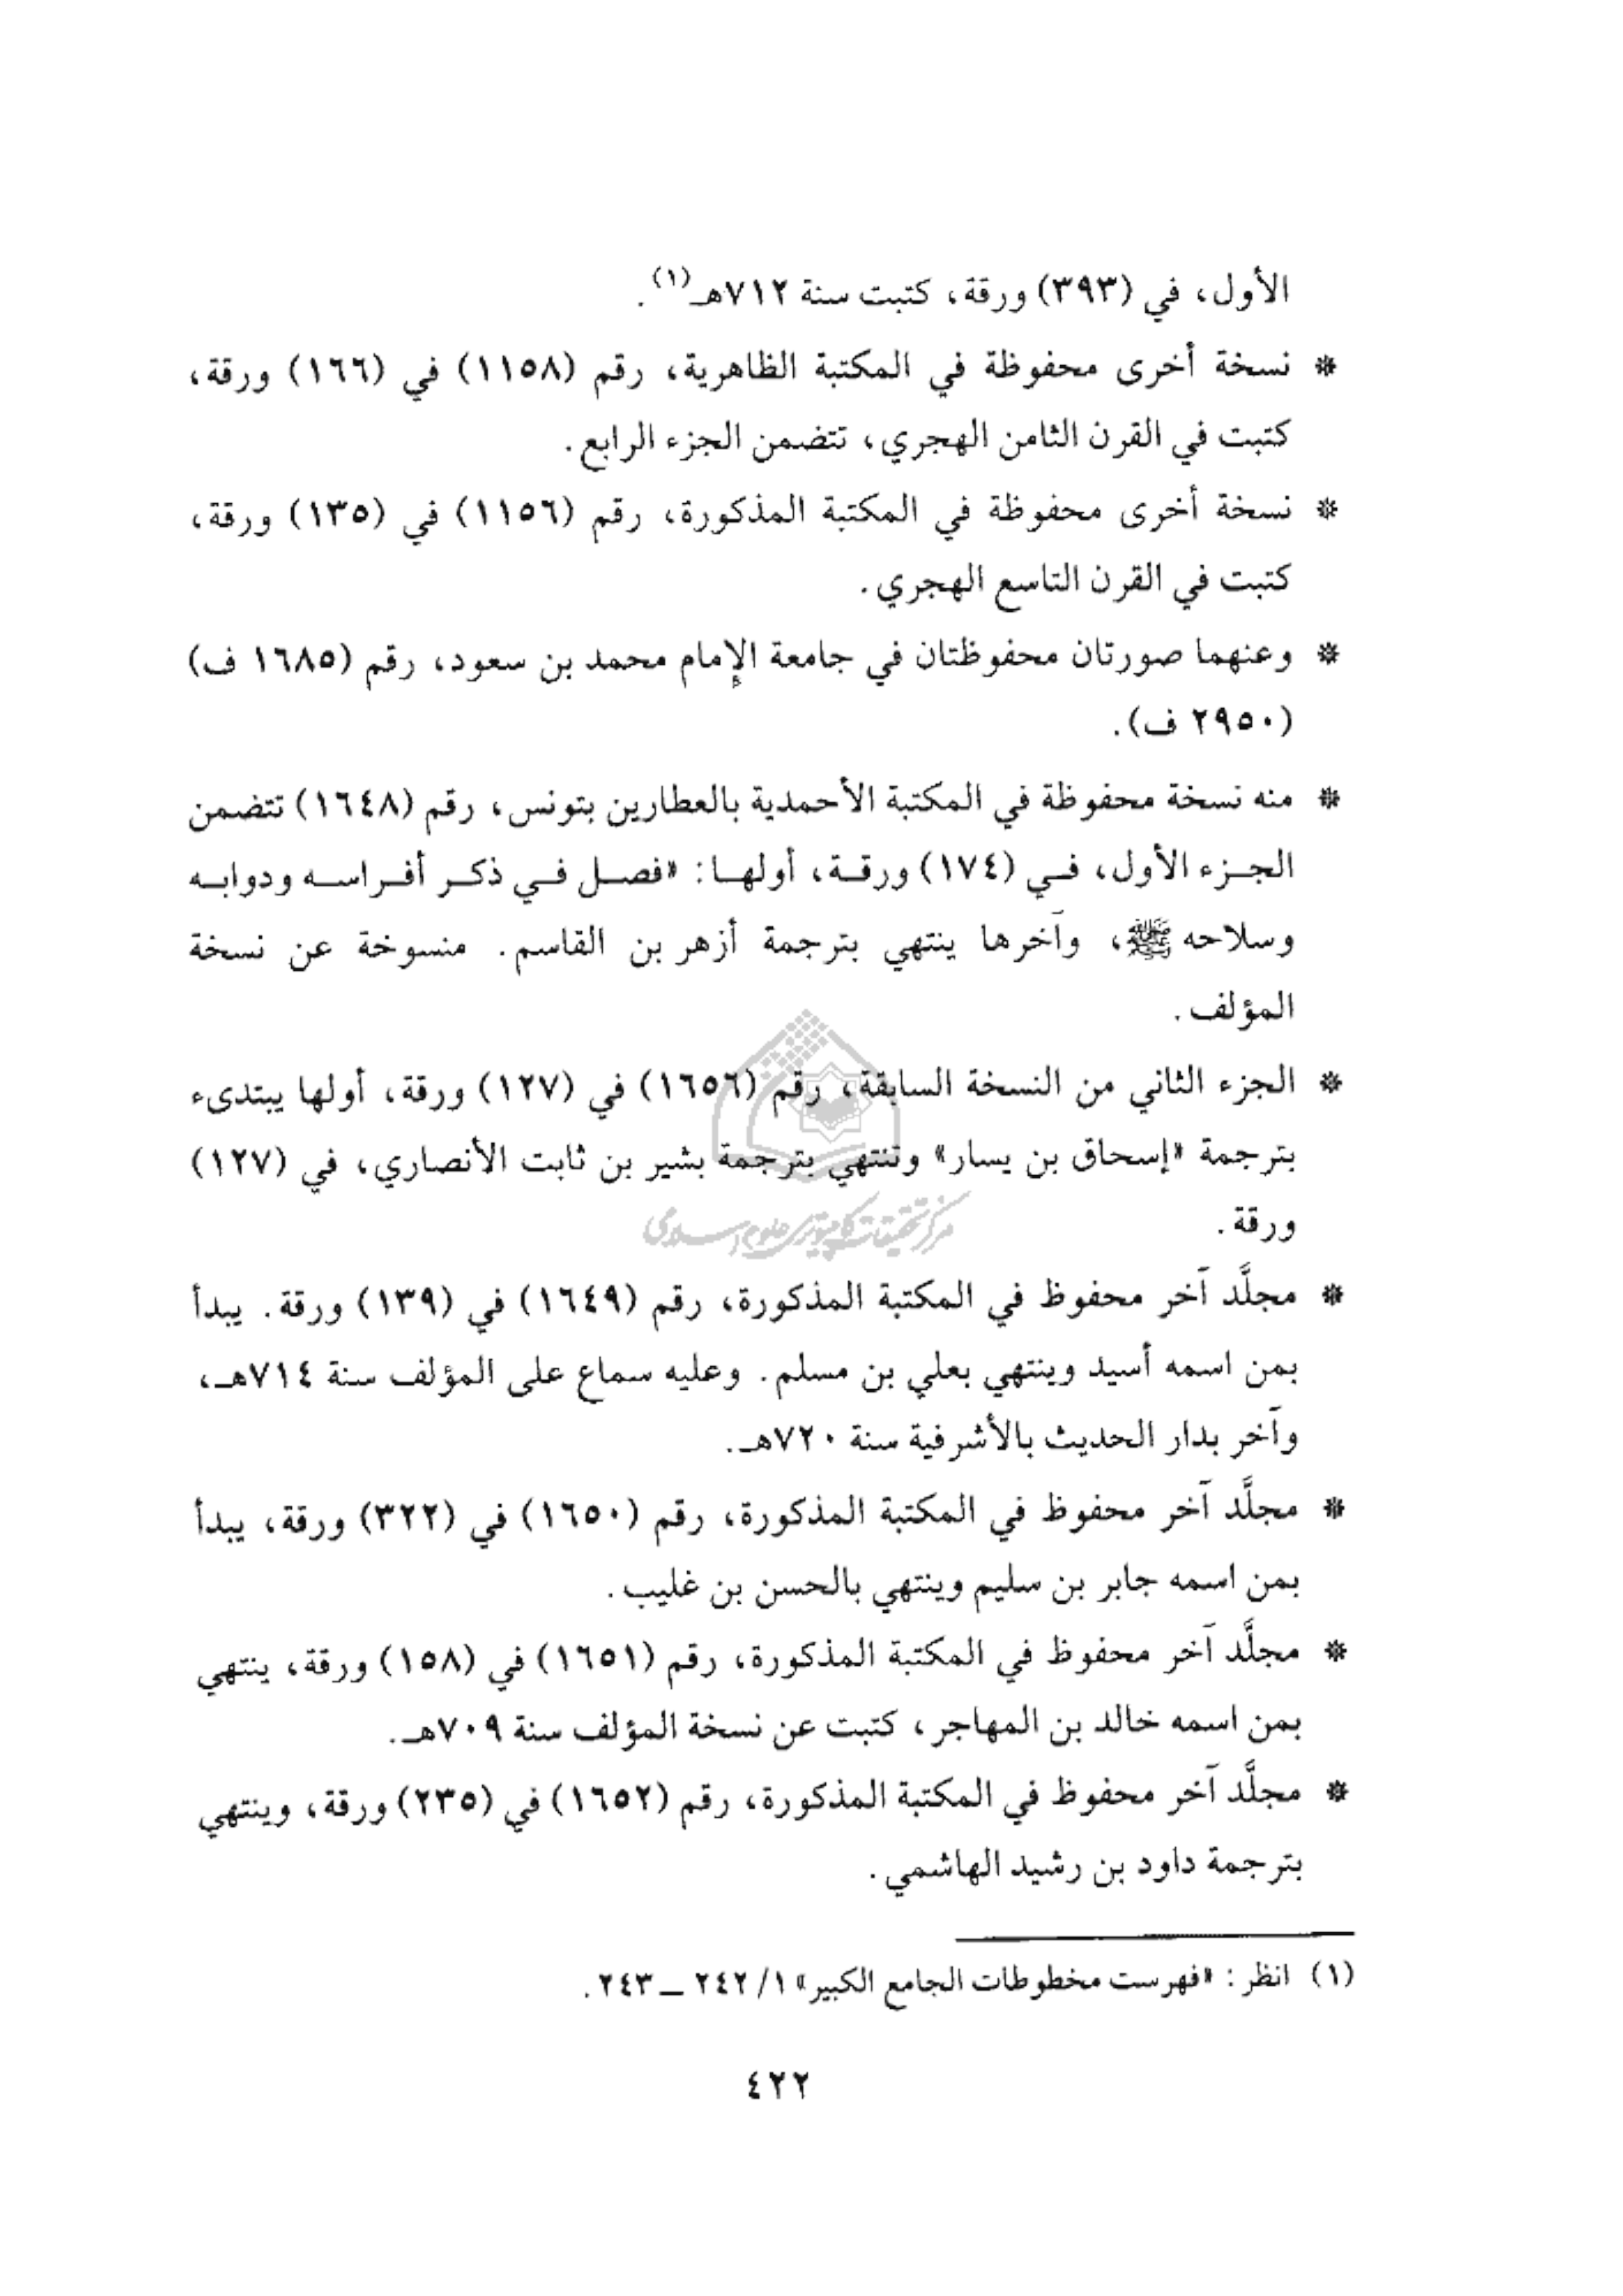 الأول، في (٣٩٣) ورقة، كتبت سنة ٧١٢هـ(١).
* نسخة أخرى محفوظة في المكتبة الظاهرية، رقم (١١٥٨) في (١٦٦) ورقة،
كتبت في القرن الثامن الهجري، تتضمن الجزء الرابع.
* نسخة أخرى محفوظة في المكتبة المذكورة، رقم (١١٥٦) في (١٣٥) ورقة،
كتبت في القرن التاسع الهجري.
* وعنهما صورتان محفوظتان في جامعة الإمام محمد بن سعود، رقم (١٦٨٥ ف)
(٢٩٥٠ ف).
* منه نسخة محفوظة في المكتبة الأحمدية بالعطارين بتونس، رقم (١٦٤٨) تتضمن
الجزء الأول، في (١٧٤) ورقة، أولها: «فصل في ذكر أفراسه ودوابه
وسلاحه ﷺ، وآخرها ينتهي بترجمة أزهر بن القاسم. منسوخة عن نسخة
المؤلف.
* الجزء الثاني من النسخة السابقة، رقم (١٦٥٦) في (١٢٧) ورقة، أولها يبتدىء
بترجمة «إسحاق بن يسار» وتنتهي بترجمة بشير بن ثابت الأنصاري، في (١٢٧)
ورقة.
مركز تحقيقات كامپيوتری علوم اسلامی
* مجلَّد آخر محفوظ في المكتبة المذكورة، رقم (١٦٤٩) في (١٣٩) ورقة. يبدأ
بمن اسمه أسيد وينتهي بعلي بن مسلم. وعليه سماع على المؤلف سنة ٧١٤هـ،
وآخر بدار الحديث بالأشرفية سنة ٧٢٠هـ.
* مجلَّد آخر محفوظ في المكتبة المذكورة، رقم (١٦٥٠) في (٣٢٢) ورقة، يبدأ
بمن اسمه جابر بن سليم وينتهي بالحسن بن غليب.
* مجلَّد آخر محفوظ في المكتبة المذكورة، رقم (١٦٥١) في (١٥٨) ورقة، ينتهي
بمن اسمه خالد بن المهاجر، كتبت عن نسخة المؤلف سنة ٧٠٩هـ.
* مجلَّد آخر محفوظ في المكتبة المذكورة، رقم (١٦٥٢) في (٢٣٥) ورقة، وينتهي
بترجمة داود بن رشيد الهاشمي.
(١) انظر: «فهرست مخطوطات الجامع الكبير» ١/ ٢٤٢ – ٢٤٣.
٤٢٢